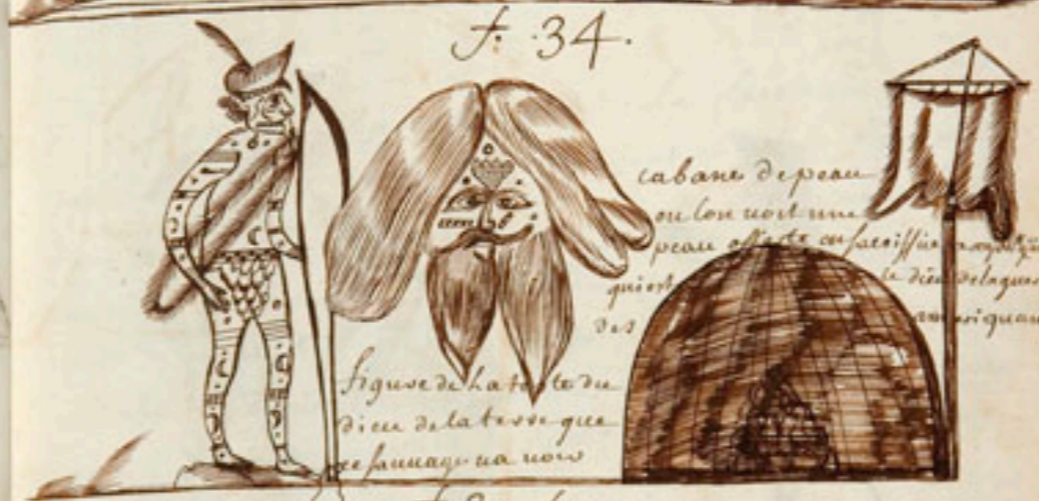 f. 34.
cabane de peau
ou lon voit une
peau offerte en sacriffice
qui est le dieu de la guerre
des ameriquains
figure de la teste du
dieu de la terre que
ce sauvage va voir